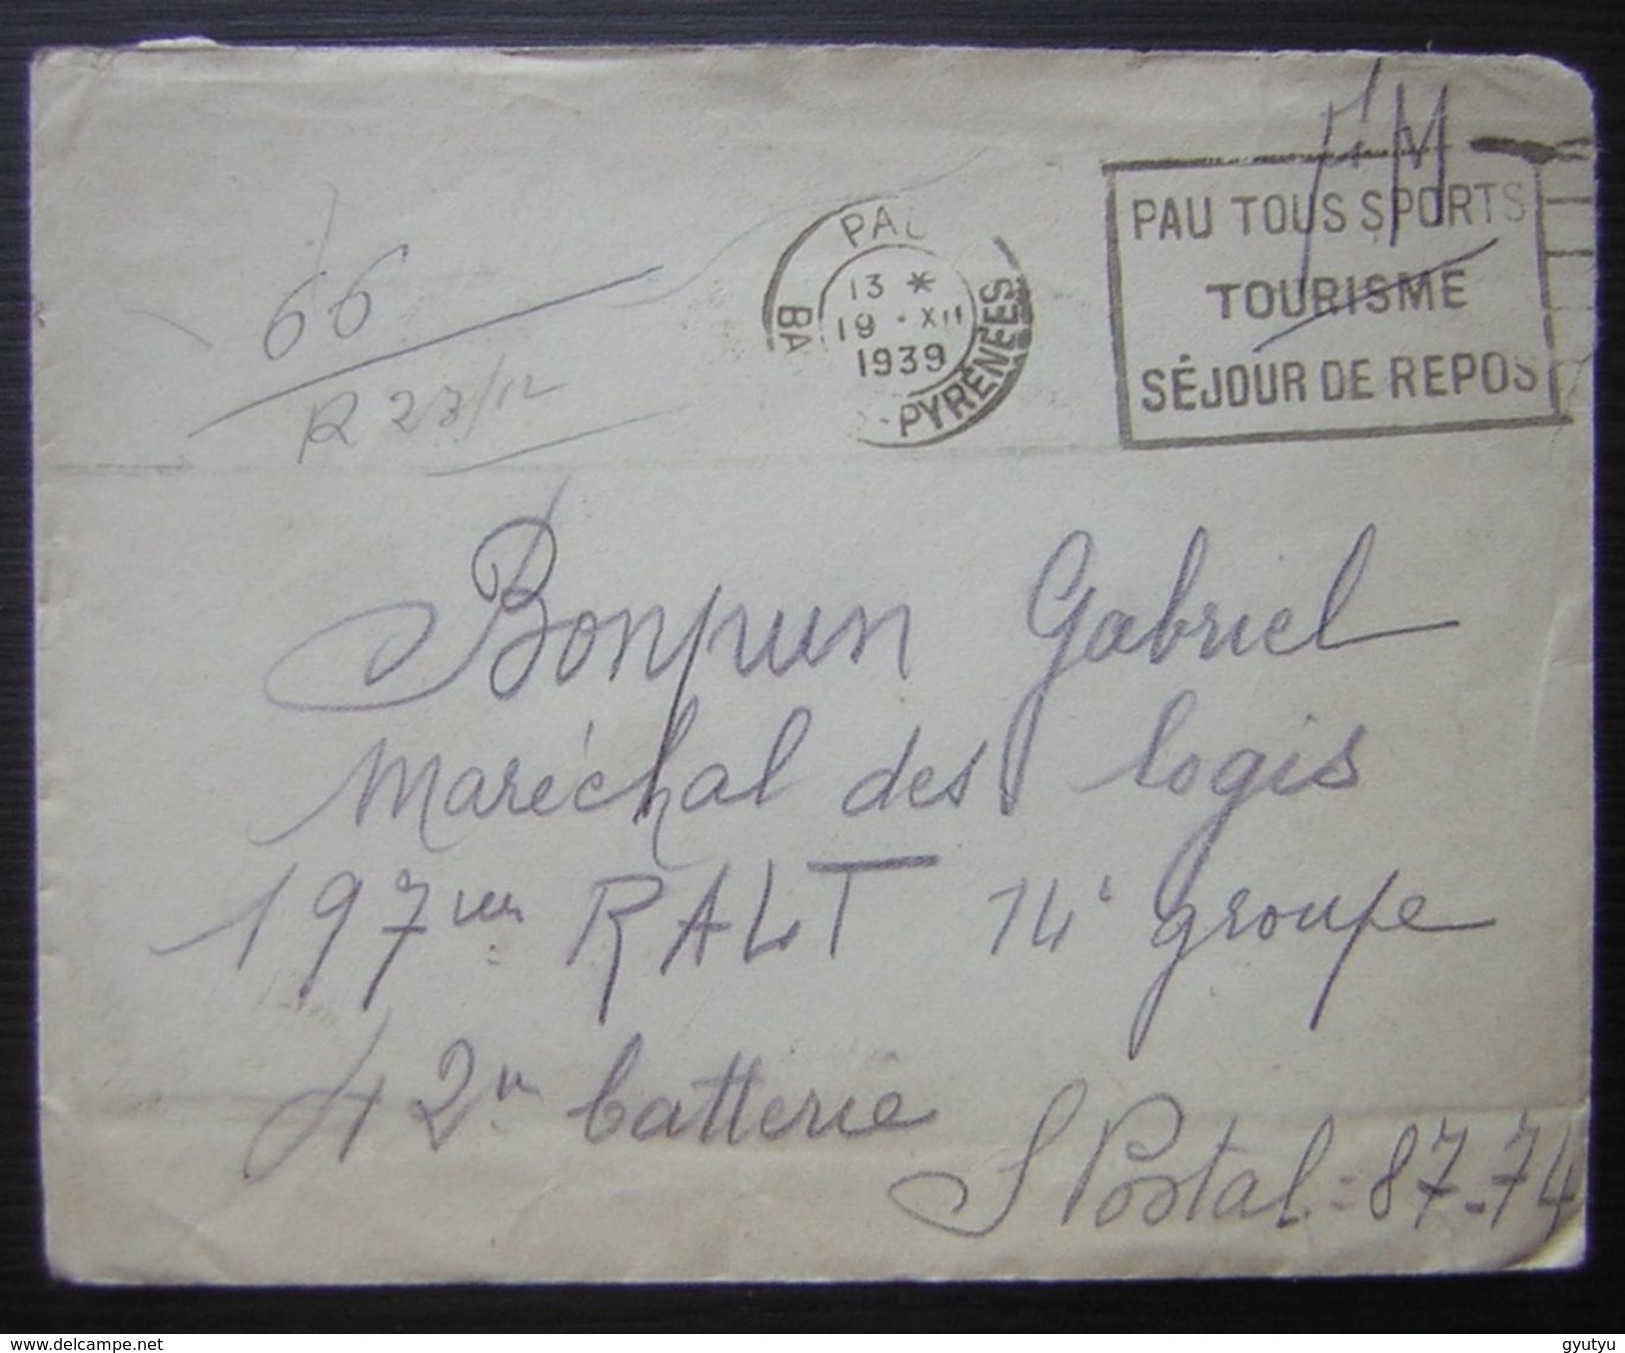 FM
PAU
13 *
19 · XII
1939
BA - PYRÉNÉES
PAU TOUS SPORTS
TOURISME
SÉJOUR DE REPOS
66
R 27/12
Bonpun Gabriel
Maréchal des logis
197me RALT 14e groupe
42e batterie
S Postal = 87-74
www.delcampe.net
gyutyu